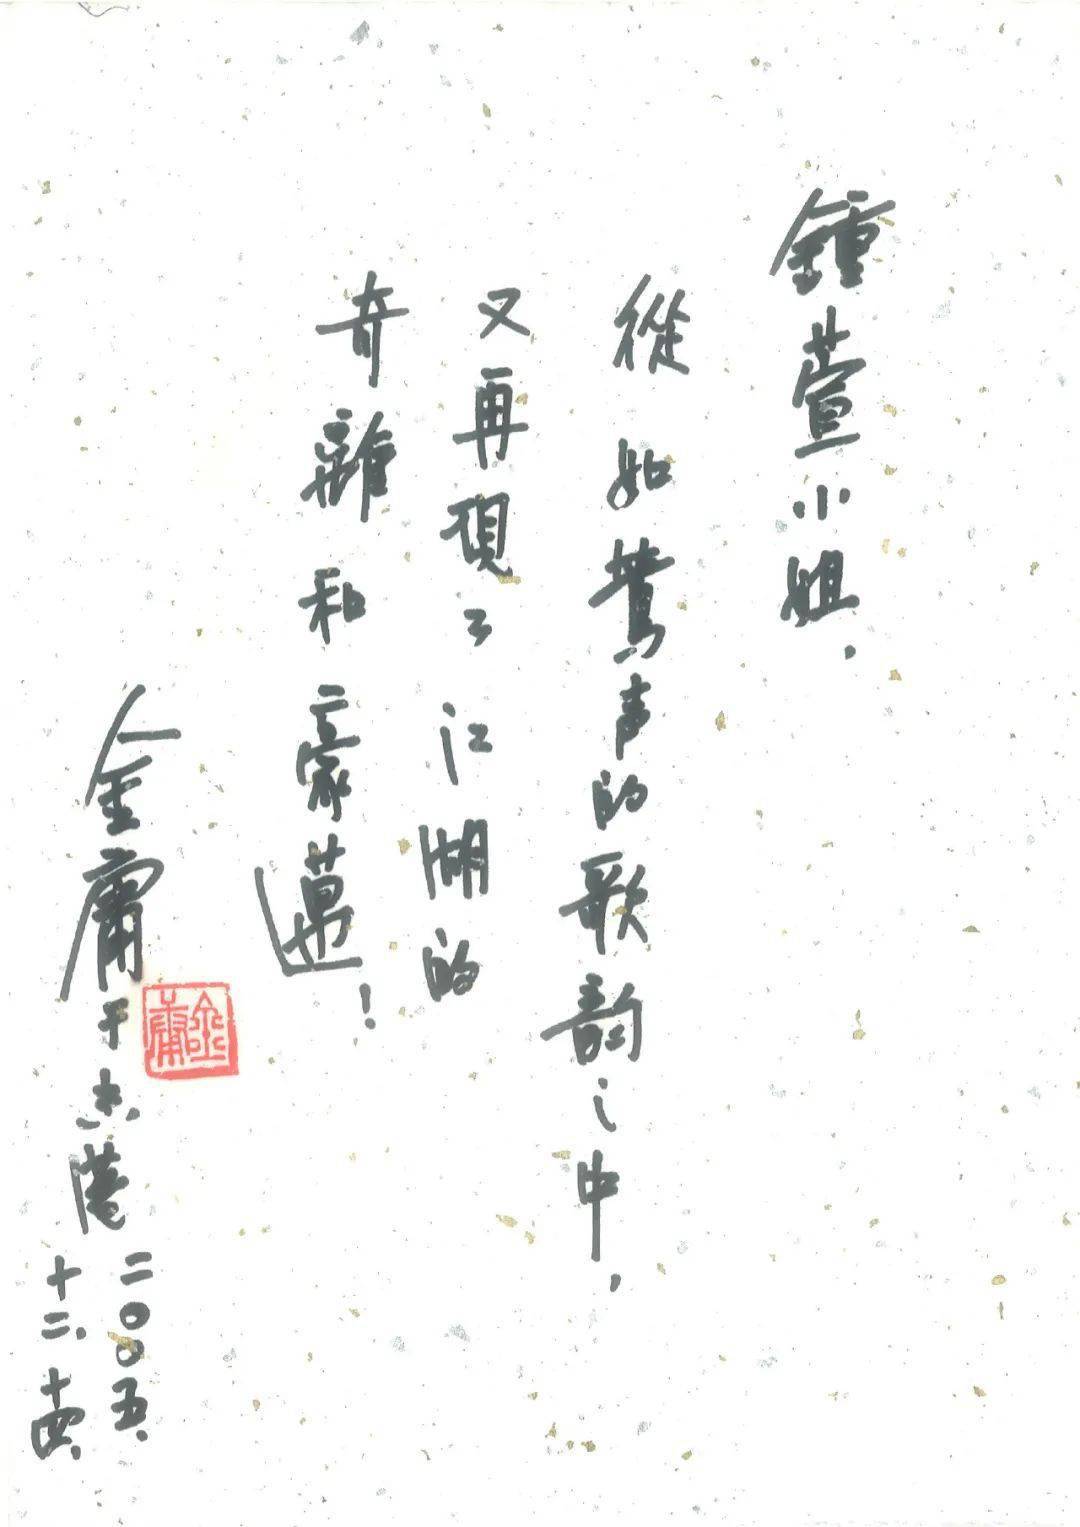 鍾萱小姐，
從如鶯声的歌韵之中，
又再現了江湖的
奇離和豪邁！
金庸于香港
二〇〇五、
十二、十四、
金庸